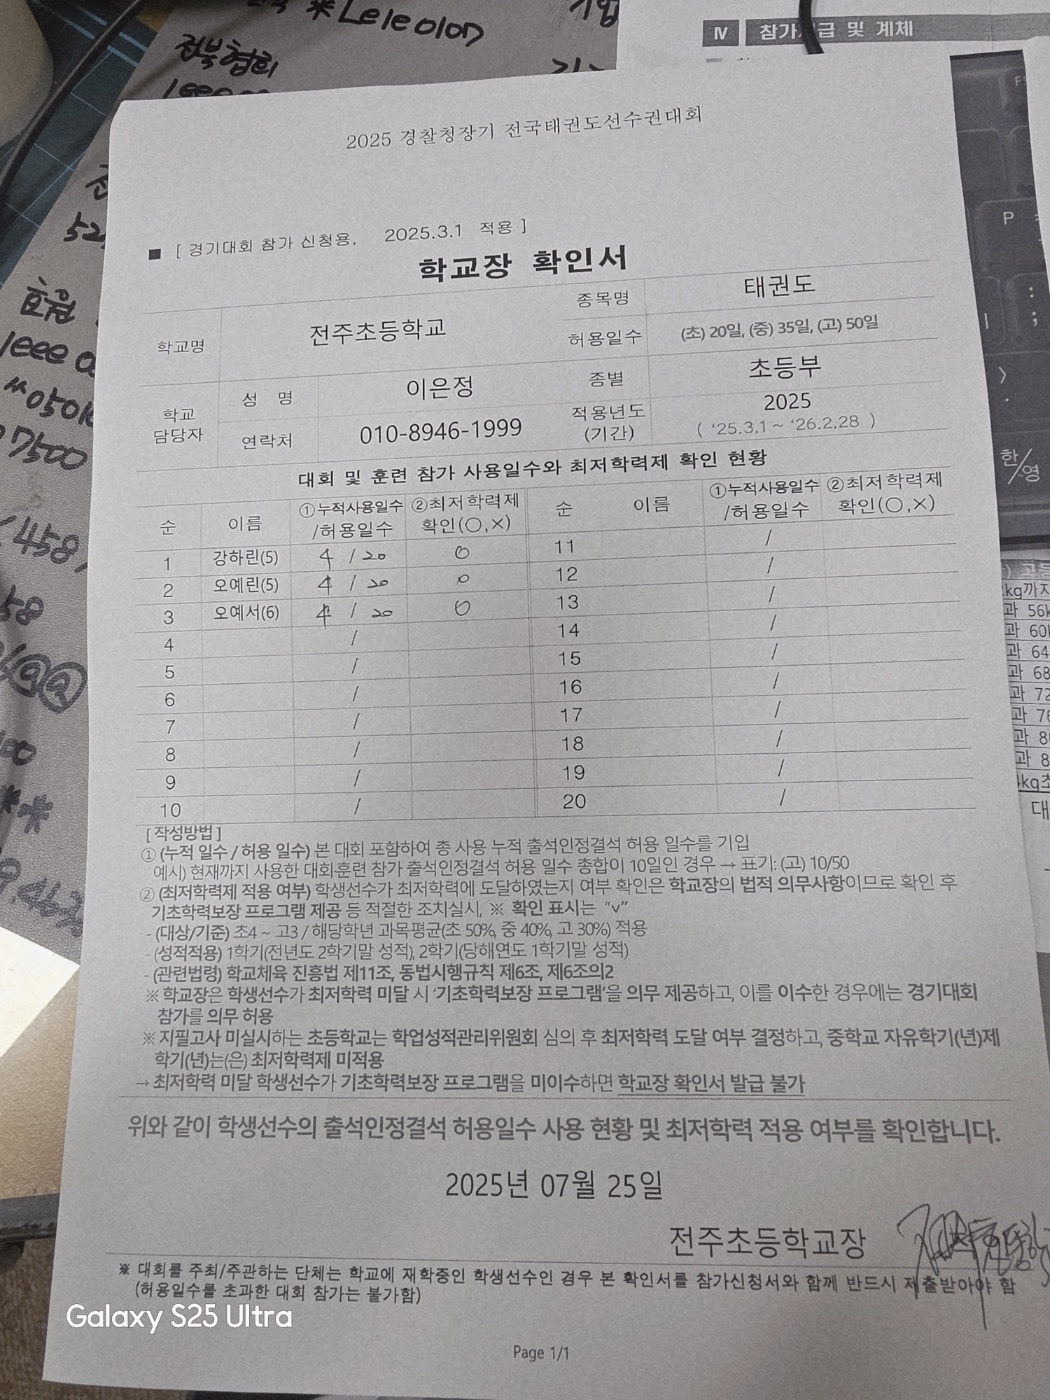 *Leleolon
기업
전북협회
Ⅳ 참가 급 및 계체
2025 경찰청장기 전국태권도선수권대회
■ [ 경기대회 참가 신청용, 2025.3.1 적용 ]
학교장 확인서
학교명 전주초등학교 종목명 태권도
허용일수 (초) 20일, (중) 35일, (고) 50일
학교 담당자 성 명 이은정 종별 초등부
연락처 010-8946-1999 적용년도 (기간) 2025
( ‘25.3.1 ~ ‘26.2.28 )
대회 및 훈련 참가 사용일수와 최저학력제 확인 현황
순 이름 ①누적사용일수 /허용일수 ②최저학력제 확인(○,×) 순 이름 ①누적사용일수 /허용일수 ②최저학력제 확인(○,×)
1 강하린(5) 4 / 20 ○ 11 /
2 오예린(5) 4 / 20 ○ 12 /
3 오예서(6) 4 / 20 ○ 13 /
4 / 14 /
5 / 15 /
6 / 16 /
7 / 17 /
8 / 18 /
9 / 19 /
10 / 20 /
[작성방법]
① (누적 일수 / 허용 일수) 본 대회 포함하여 총 사용 누적 출석인정결석 허용 일수를 기입
예시) 현재까지 사용한 대회·훈련 참가 출석인정결석 허용 일수 총합이 10일인 경우 → 표기: (고) 10/50
② (최저학력제 적용 여부) 학생선수가 최저학력에 도달하였는지 여부 확인은 학교장의 법적 의무사항이므로 확인 후
기초학력보장 프로그램 제공 등 적절한 조치실시, ※ 확인 표시는 “v”
- (대상/기준) 초4 ~ 고3 / 해당학년 과목평균(초 50%, 중 40%, 고 30%) 적용
- (성적적용) 1학기(전년도 2학기말 성적), 2학기(당해연도 1학기말 성적)
- (관련법령) 학교체육 진흥법 제11조, 동법시행규칙 제6조, 제6조의2
※ 학교장은 학생선수가 최저학력 미달 시 ‘기초학력보장 프로그램’을 의무 제공하고, 이를 이수한 경우에는 경기대회
참가를 의무 허용
※ 지필고사 미실시하는 초등학교는 학업성적관리위원회 심의 후 최저학력 도달 여부 결정하고, 중학교 자유학기(년)제
학기(년)는(은) 최저학력제 미적용
→ 최저학력 미달 학생선수가 기초학력보장 프로그램을 미이수하면 학교장 확인서 발급 불가
위와 같이 학생선수의 출석인정결석 허용일수 사용 현황 및 최저학력 적용 여부를 확인합니다.
2025년 07월 25일
전주초등학교장
※ 대회를 주최/주관하는 단체는 학교에 재학중인 학생선수인 경우 본 확인서를 참가신청서와 함께 반드시 제출받아야 함
(허용일수를 초과한 대회 참가는 불가함)
Galaxy S25 Ultra
Page 1/1
효원
7500
458
P
한/영